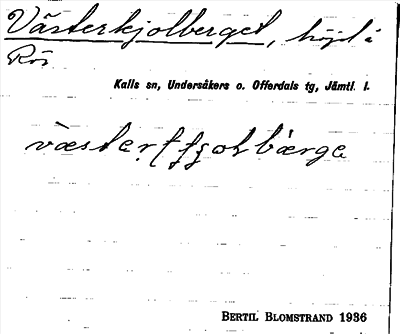 Västerkjolberget, höjd i
Rör
Kalls sn, Undersåkers o. Offerdals tg, Jämtl. l.
BERTIL BLOMSTRAND 1936